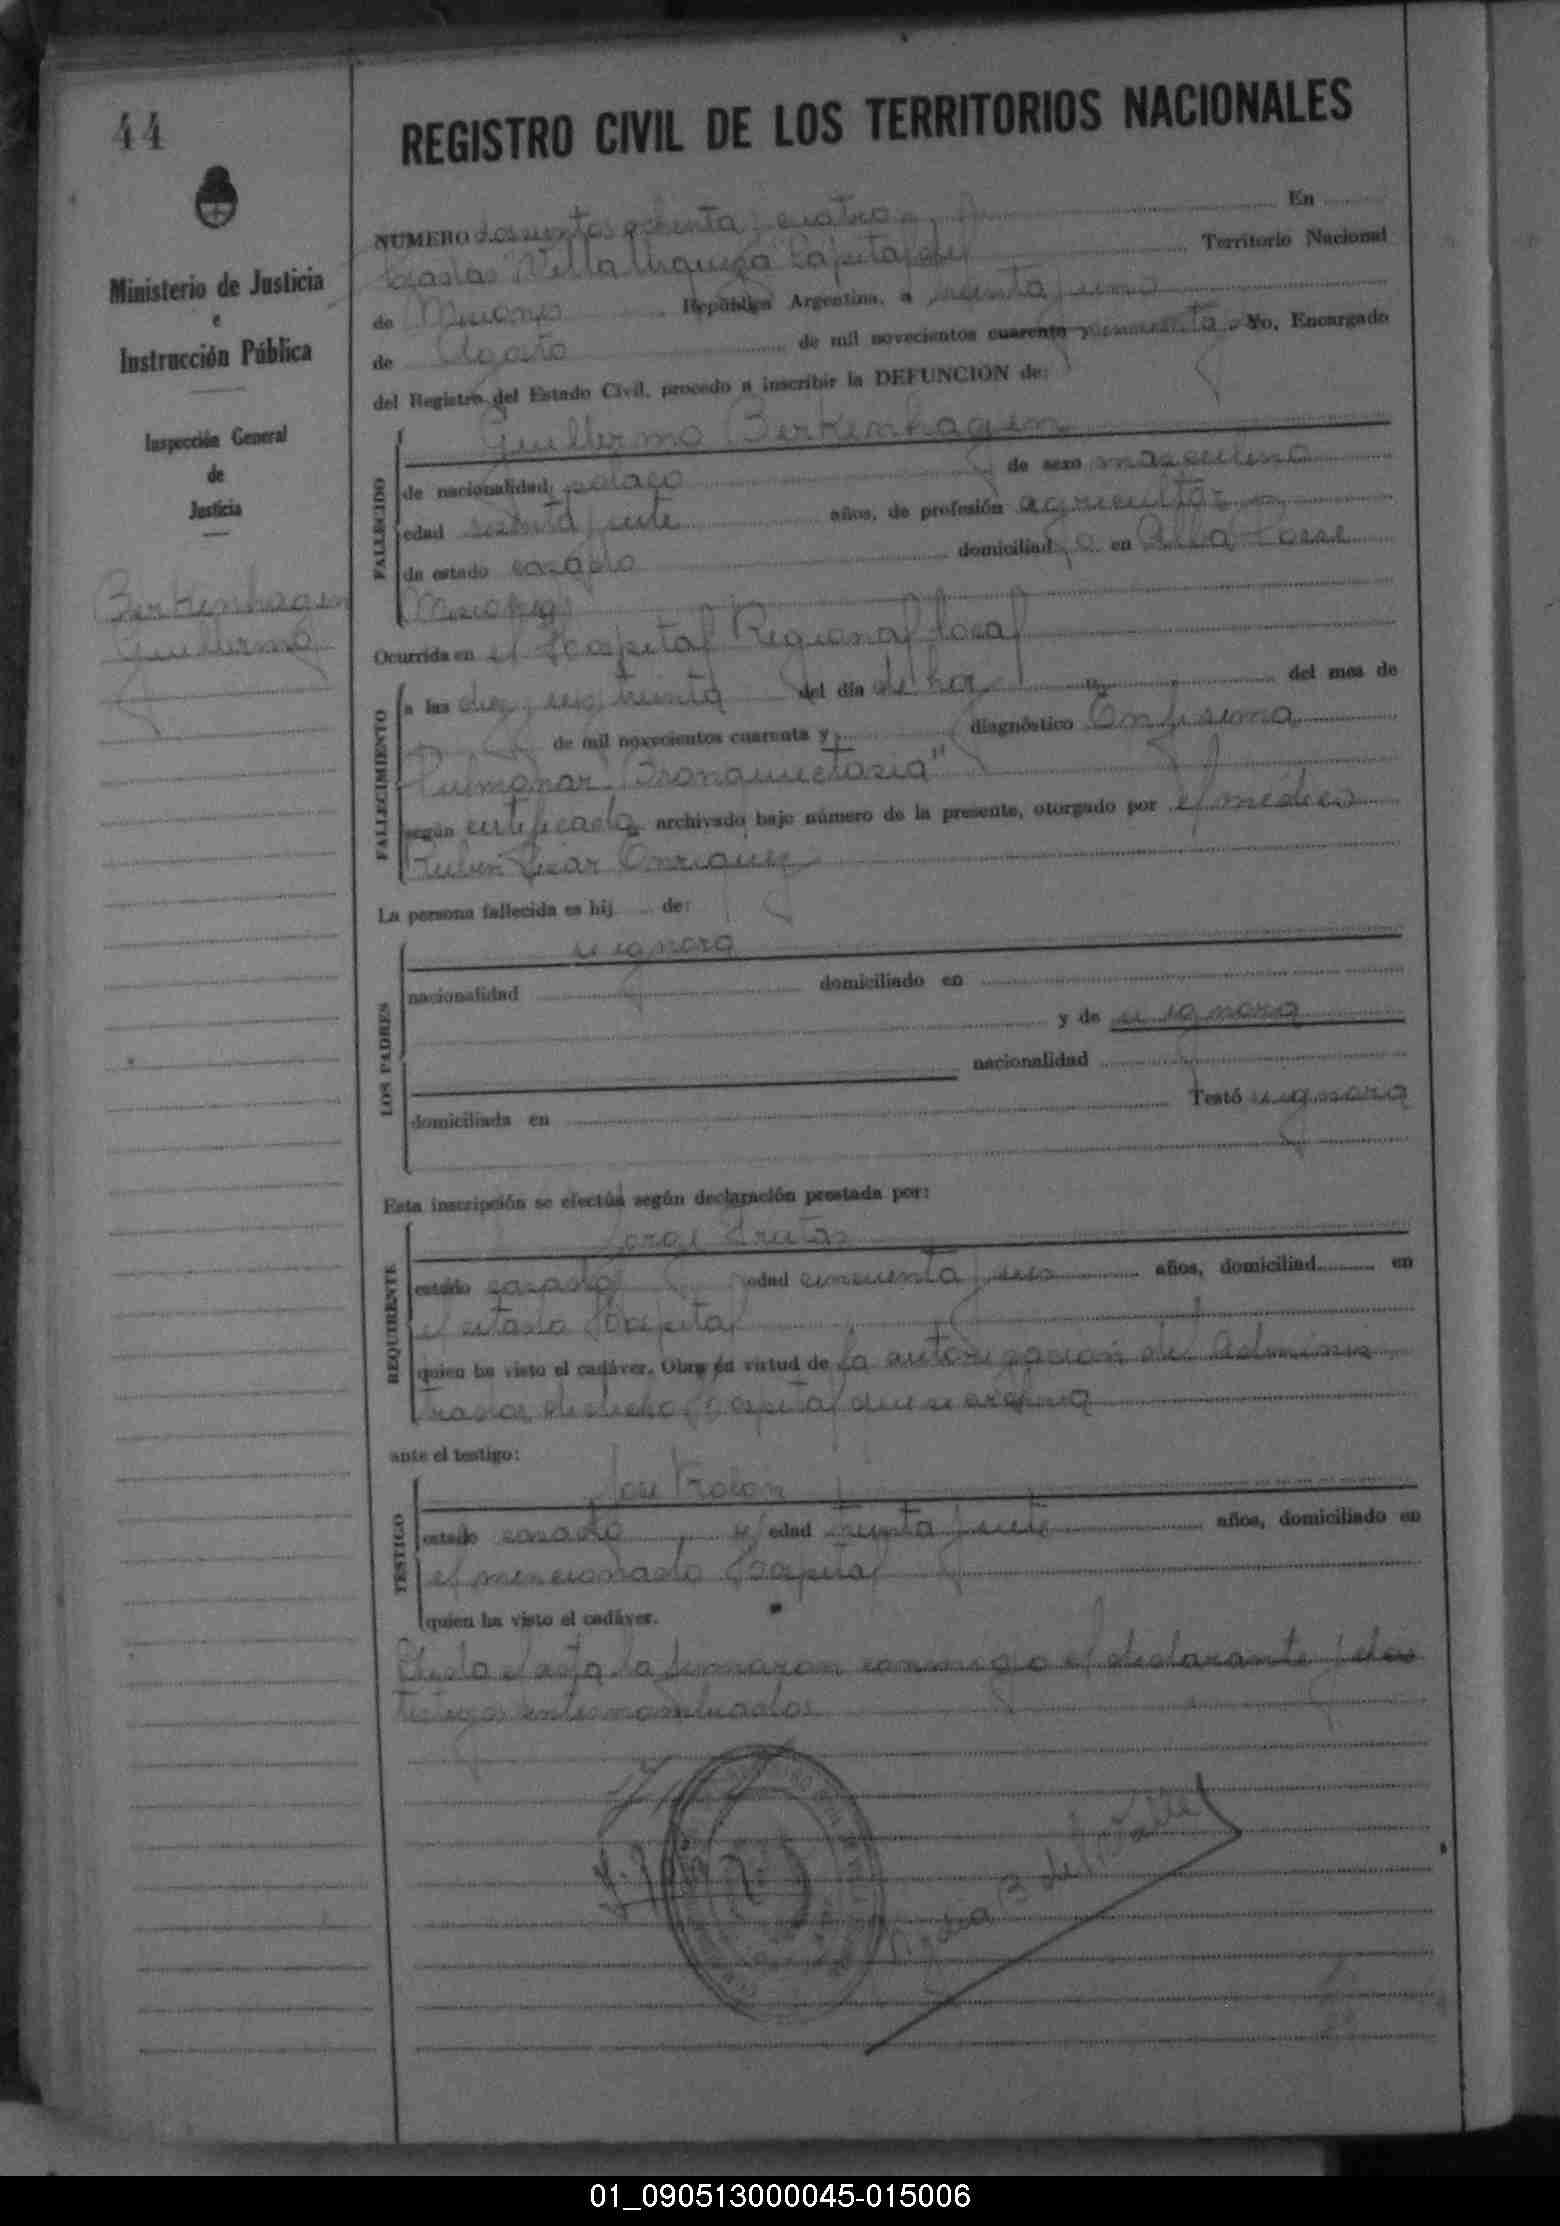 44
REGISTRO CIVIL DE LOS TERRITORIOS NACIONALES
Ministerio de Justicia
e
Instrucción Pública
Inspección General
de
Justicia
Berkenhagen
Guillermo
NUMERO doscientos ochenta y cuatro En
Posadas Villa Urquiza Capital del Territorio Nacional
de Misiones República Argentina, a treinta y uno
de Agosto de mil novecientos cuarenta y cincuenta Yo, Encargado
del Registro del Estado Civil, procedo a inscribir la DEFUNCION de:
FALLECIDO
Guillermo Berkenhagen
de nacionalidad polaco de sexo masculino
edad y siete años, de profesión agricultor
de estado casado domiciliad o en Alba Posse
Misiones
Ocurrida en el Hospital Regional local
FALLECIMIENTO
a las diez y treinta del día de hoy del mes de
de mil novecientos cuarenta y diagnóstico Enfisema
Pulmonar Bronquiectasia"
según certificado archivado bajo número de la presente, otorgado por el médico
Ruben Enriquez
La persona fallecida es hij de:
LOS PADRES
se ignora
nacionalidad domiciliado en
y de se ignora
nacionalidad
domiciliada en Testó se ignora
Esta inscripción se efectúa según declaración prestada por:
REQUIRENTE
Jorge
estado casado edad cincuenta y años, domiciliad en
el citado Hospital
quien ha visto el cadáver. Obra en virtud de la autorización del Adminis
trador de dicho Hospital que se archiva
ante el testigo:
TESTIGO
José
estado casado edad treinta y siete años, domiciliado en
el mencionado Hospital
quien ha visto el cadáver.
Leida el acta la firmaron conmigo el declarante y los
testigos antes nombrados
del Valle
01_090513000045-015006